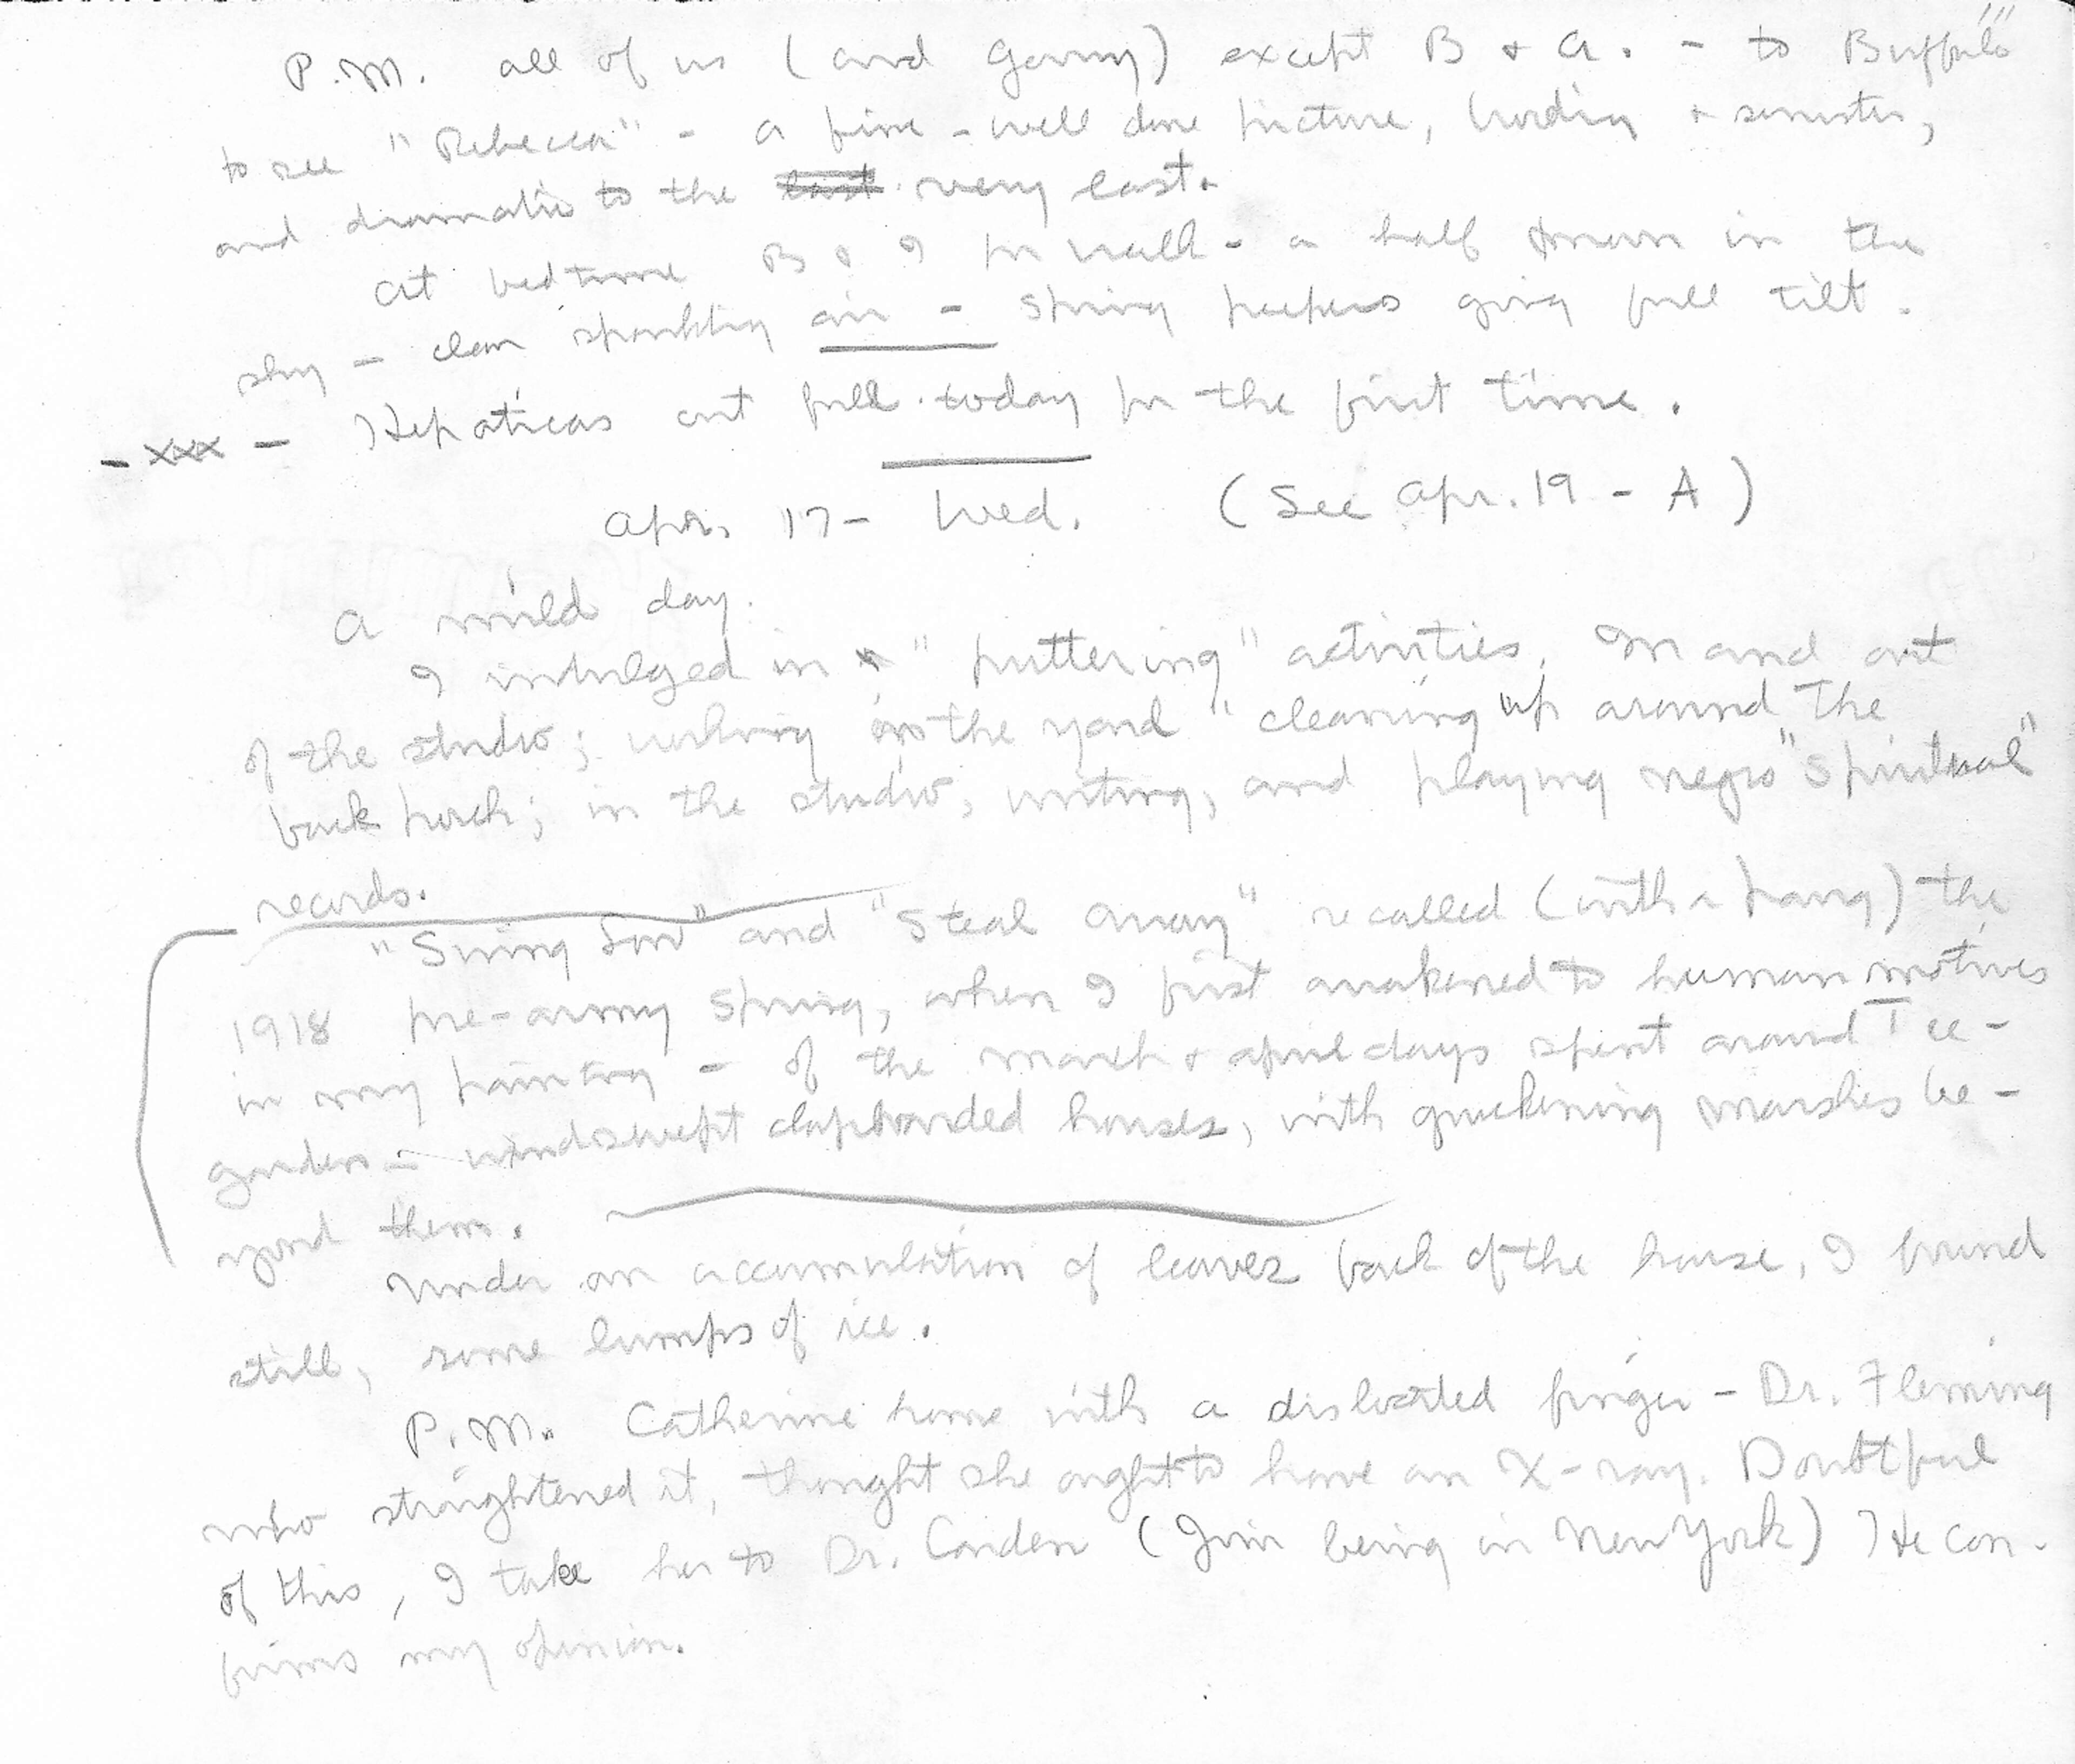 P.M. all of us (and Ganny) except B + A. - to Buffalo
to see "Rebecca" - a fine - well done picture, brooding + sinister,
and dramatic to the last very last.
At bedtime B + I for walk - a half moon in the
sky - clean sparkling air - spring peepers going full tilt.
- xxx - Hepaticas out full today for the first time.
Apr. 17 - Wed. (See Apr. 19 - A)
A mild day.
I indulged in "puttering" activities. In and out
of the studio; working in the yard cleaning up around the
back porch; in the studio, writing, and playing negro "spiritual"
records.
"Swing Low" and "Steal Away" recalled (with a pang) the
1918 pre-army spring, when I first awakened to human motives
in my painting - of the March + April days spent around Tee-
garden - windswept clapboarded houses, with quickening marshes be-
yond them.
Under an accumulation of leaves back of the house, I found
still, some lumps of ice.
P.M. Catherine home with a dislocated finger - Dr. Fleming
who straightened it, thought she ought to have an X-ray. Doubtful
of this, I take her to Dr. Conden (Jim being in New York) He con-
firms my opinion.